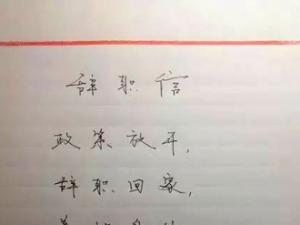 辞职信
政策放开,
辞职回家,